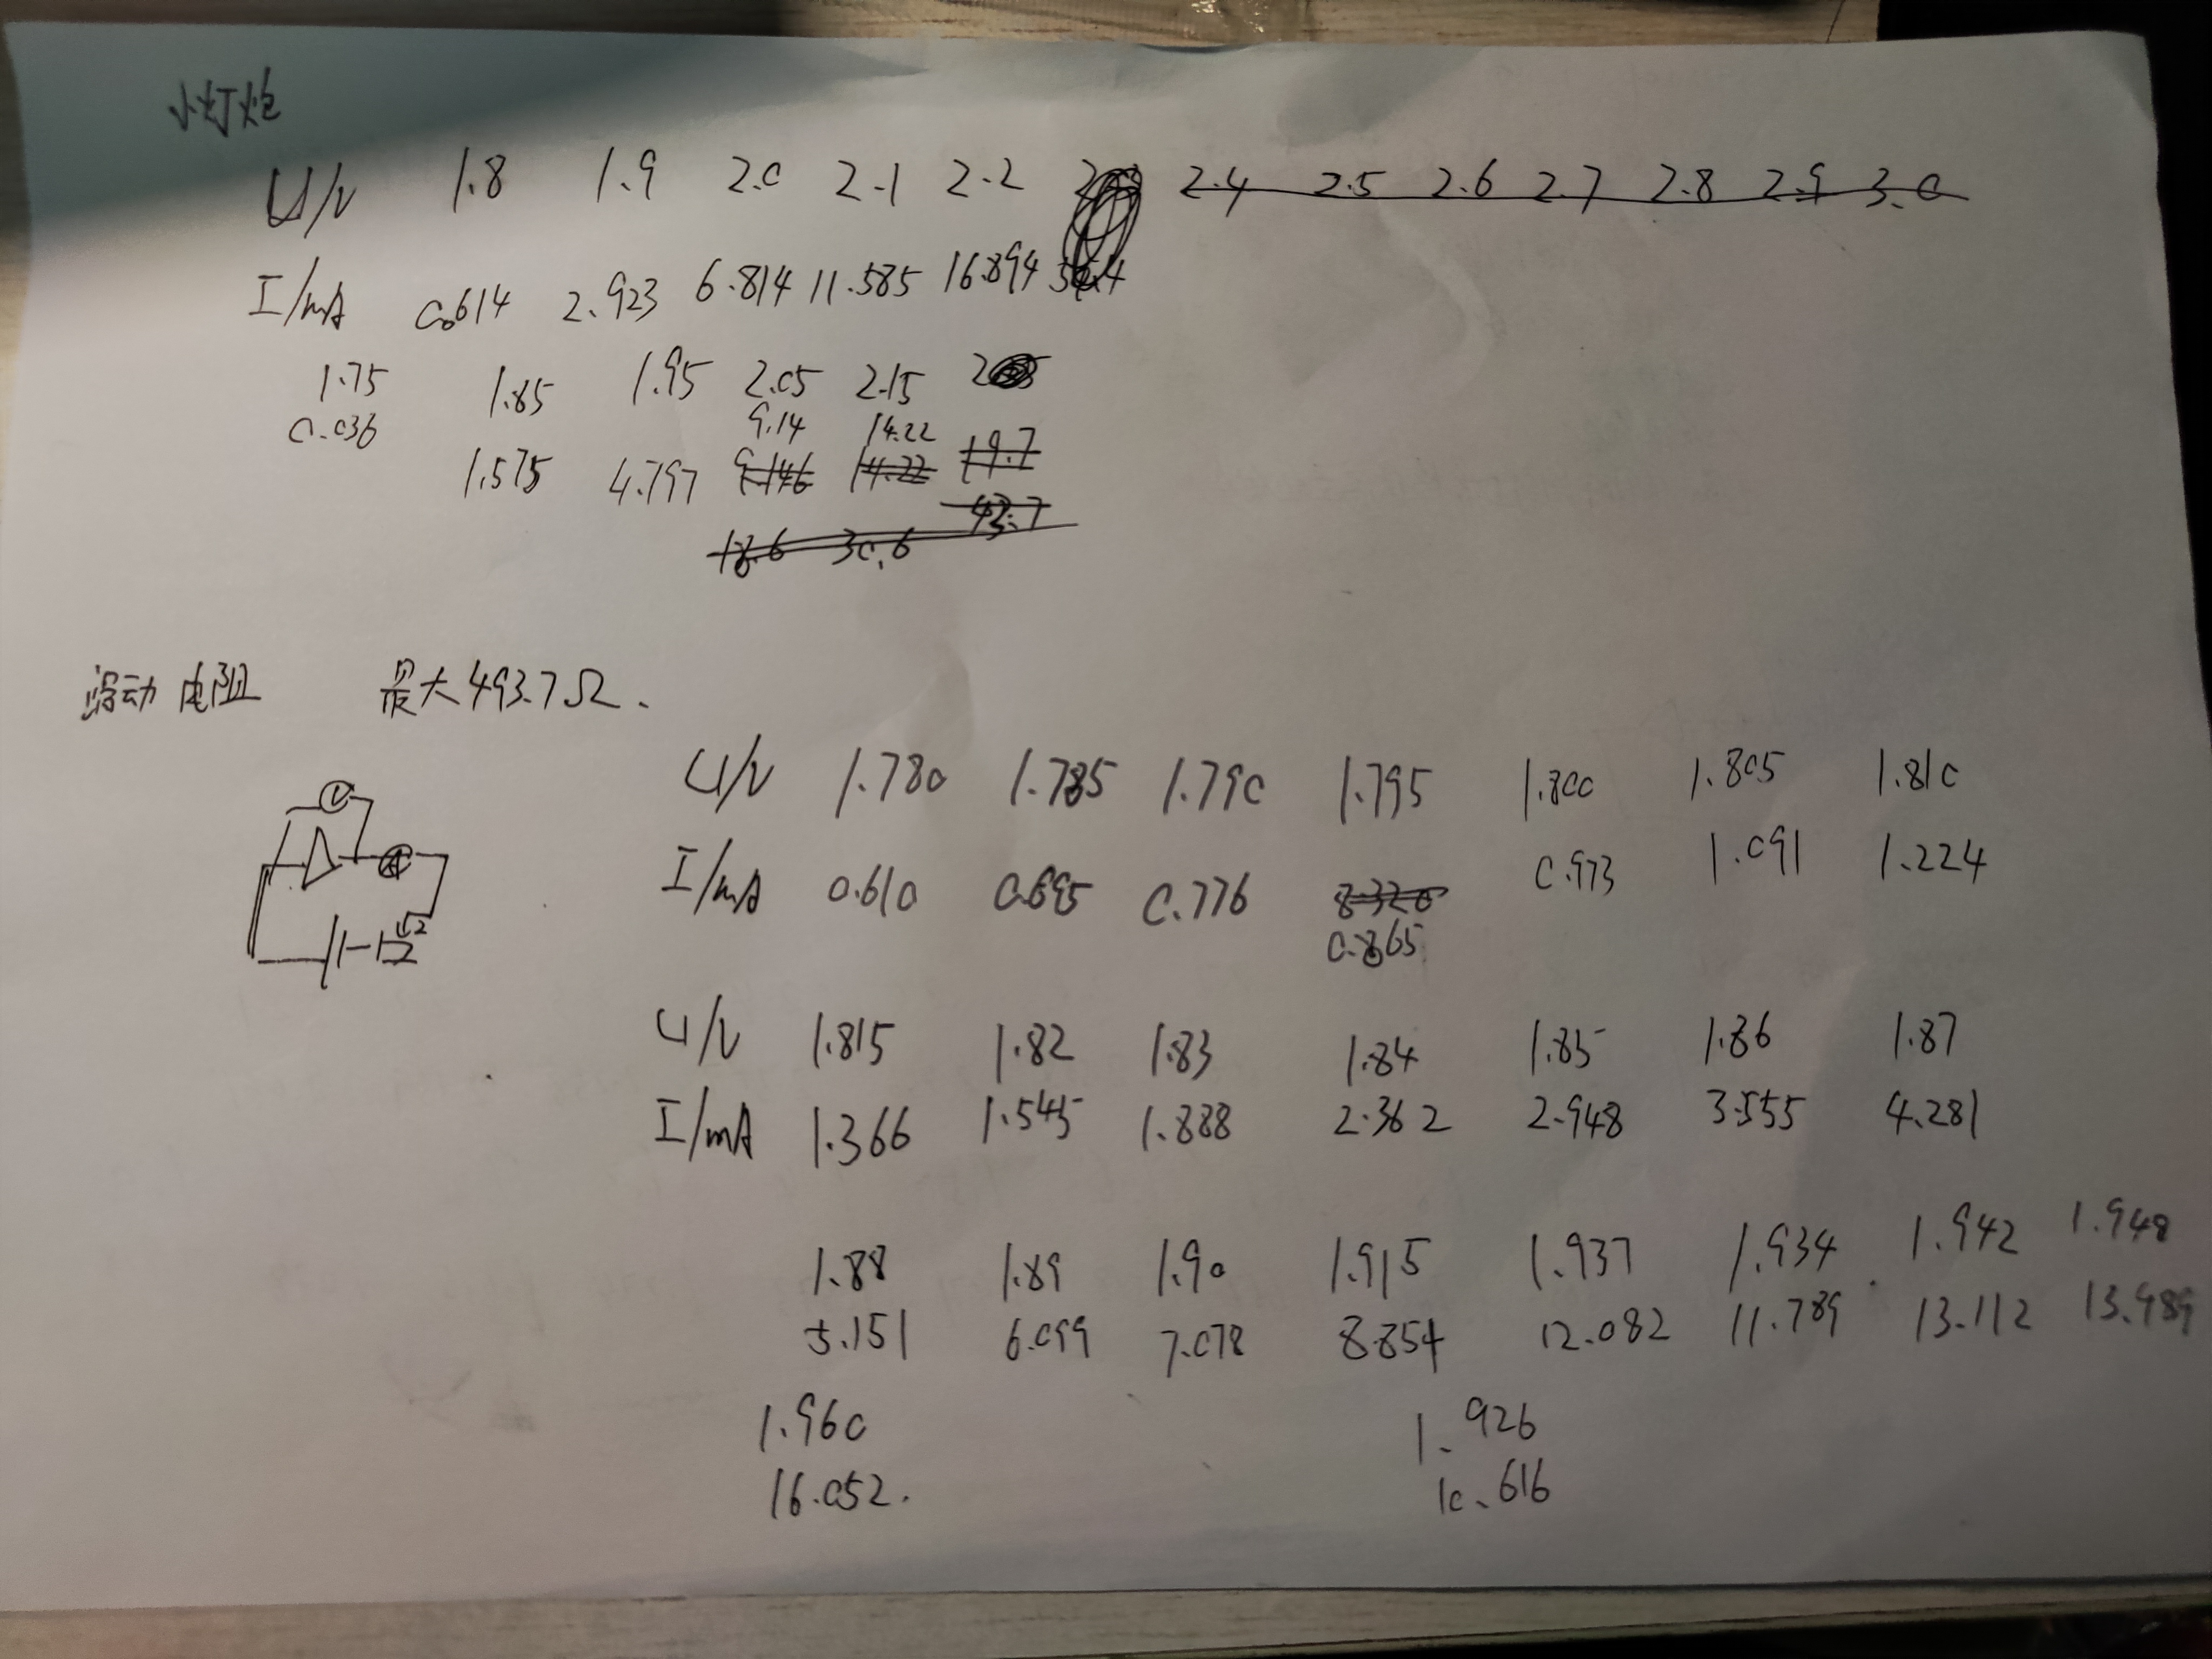 小灯炮
U/V 1.8 1.9 2.0 2.1 2.2 2.4 2.5 2.6 2.7 2.8 2.9 3.0
I/mA 0.614 2.923 6.814 11.585 16.894
1.75 1.85 1.95 2.05 2.15
0.036 9.14 14.22
1.575 4.797 9.146 14.22 19.7
43.7
18.6 30.6
滑动电阻 最大493.7Ω.
U/V 1.780 1.785 1.790 1.795 1.800 1.805 1.810
V
I/mA 0.610 0.695 0.776 0.973 1.091 1.224
A
0.865
U/V 1.815 1.82 1.83 1.84 1.85 1.86 1.87
I/mA 1.366 1.545 1.888 2.362 2.948 3.555 4.281
1.88 1.89 1.90 1.915 1.937 1.934 1.942 1.948
5.151 6.099 7.078 8.854 12.082 11.789 13.112 13.989
1.960 1.926
16.052. 10.616